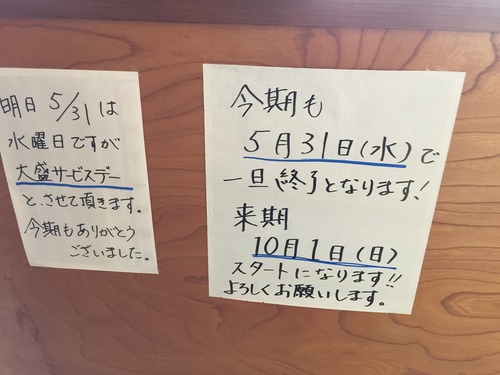 明日 5/31 は
水曜日ですが
大盛サービスデー
と、させて頂きます。
今期もありがとう
ございました。
今期も
5月31日(水)で
一旦終了となります!
来期
10月1日(日)
スタートになります!!
よろしくお願いします。